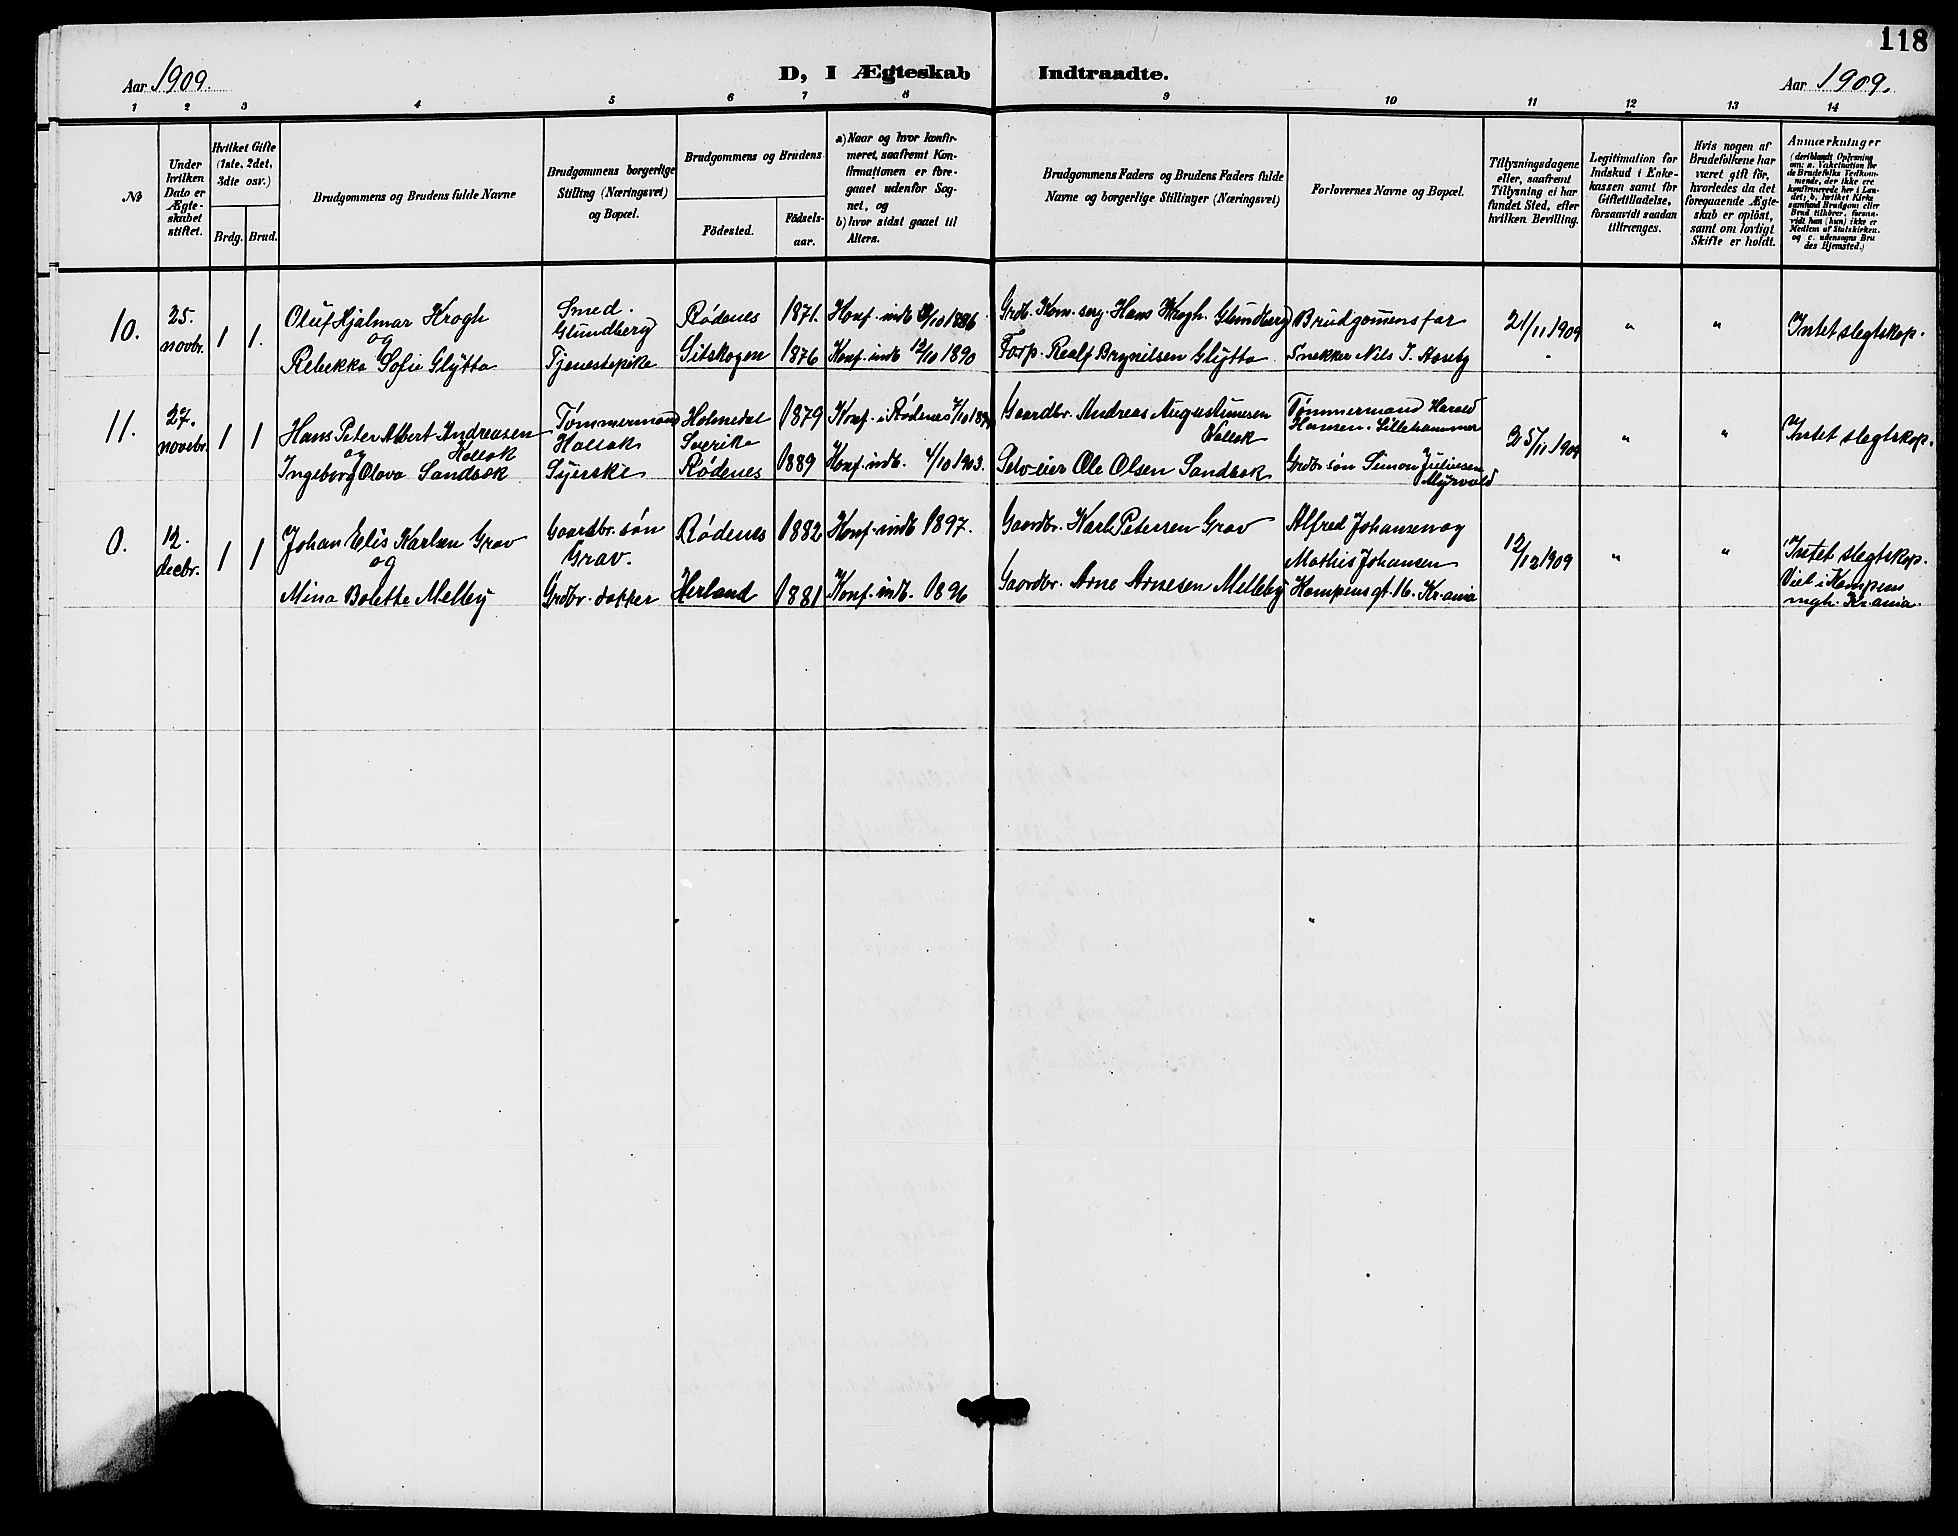 118
Aar 1909.
D, I Ægteskab Indtraadte.
Aar 1909.
1 2 3 4 5 6 7 8 9 10 11 12 13 14
No
Under hvilken Dato er Ægte-skabet stiftet.
Hvilket Gifte (1ste, 2det, 3die osv.)
Brdg. Brud.
Brudgommens og Brudens fulde Navne
Brudgommens borgerlige Stilling (Næringsvei) og Bopæl.
Brudgommens og Brudens
Födested.
Födsels-aar.
a) Naar og hvor konfir-
meret, saafremt Kon-
firmationen er fore-
gaaet udenfor Sog-
net, og
b) hvor sidst gaaet til
Alters.
Brudgommens Faders og Brudens Faders fulde
Navne og borgerlige Stillinger (Næringsvei)
Forlovernes Navne og Bopæl.
Tillysningsdagene
eller, saafremt
Tillysning ei har
fundet Sted, efter
hvilken Bevilling.
Legitimation for
Indskud i Enke-
kassen samt for
Giftetilladelse,
forsaavidt saadan
tiltrænges.
Hvis nogen af
Brudefolkene har
været gift för,
hvorledes da det
foregaaende Ægte-
skab er oplöst,
samt om lovligt
Skifte er holdt.
Anmærkninger
(deriblandt Oplysning
om: a. Vakcination for
de Brudefolks Vedkom-
mende, der ikke ere
konfirmerede her i Lan-
det; b. hvilket Kirke
samfund Brudgom eller
Brud tilhörer, forsaa-
vidt han (hun) ikke er
Medlem af Statskirken.
og c. udensogns Bru
des Hjemsted.)
10. 25. novbr. 1 1.
Oluf Hjalmar Krogh
og
Rebekka Sofie Glytta
Smed.
Glundberg
Tjenestepike
Rødenes 1871. Konf. indb 1886
Sitskogen 1876 Konf. indb 12/10 1890
Grdb. Kom. serg. Hans Krogh. Glundberg
Forp. Realf Brynilsen Glytta
Brudgomens far
Snekker Nils J. Aaseby
21/11 1909 " "
Intet slegtskap.
11. 27. novebr. 1 1
Hans Peter Albert Andreasen
Kollak
og
Ingeborg Olava Sandbæk
Tømmermand
Kollak
Syerske
Holmedal
Sverike
Rødenes
1879
1889
Konf. i Rødenes
Konf. indb. 4/10 1903.
Gaardbr. Andreas Augustinusen
Kollak
Selveier Ole Olsen Sandbæk
Tømmermand Harald
Hansen. Lillehammer
Grdbr søn Simon Juliusen
Myrvold
25/11 1909 " "
Intet slegtskap.
0. 12. decbr. 1 1
Johan Elis Karlsen Grav
og
Mina Bolette Melleby
Gaardbr. søn
Grav.
Grdbr. datter
Rødenes 1882 Konf. indb 1897.
Herland 1881 Konf. indb. 1896
Gaardbr. Karl Petersen Grav
Gaardbr. Arne Arnesen Melleby
Alfred Johansen og
Mathis Johansen
Kampensgt. 16. Kr.ania
12/12 1909 " "
Intet slegtskap.
Viet i Kampens
mgh. Kr.ania.